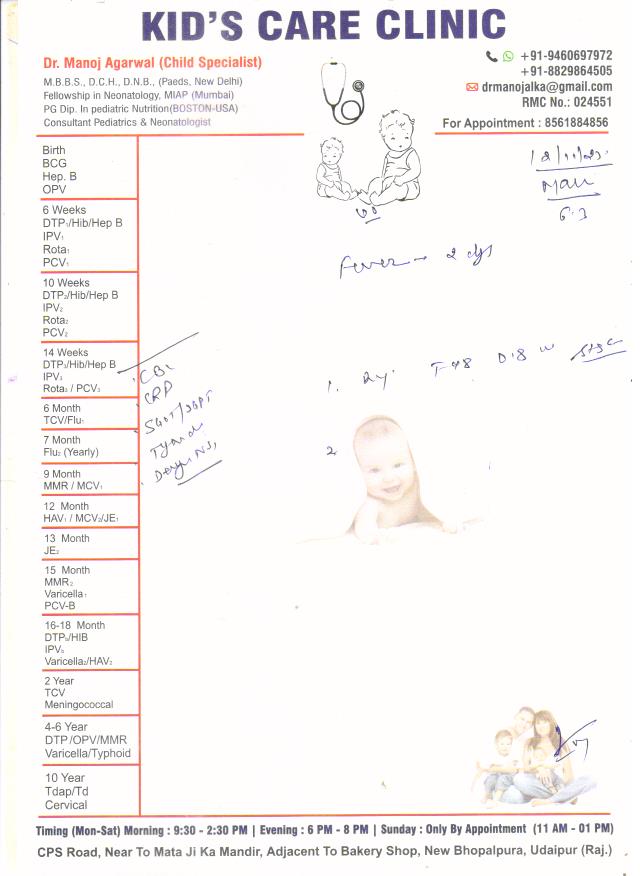 KID'S CARE CLINIC
Dr. Manoj Agarwal (Child Specialist)
M.B.B.S., D.C.H., D.N.B., (Paeds, New Delhi)
Fellowship in Neonatology, MIAP (Mumbai)
PG Dip. In pediatric Nutrition(BOSTON-USA)
Consultant Pediatrics & Neonatologist
+91-9460697972
+91-8829864505
drmanojalka@gmail.com
RMC No.: 024551
For Appointment : 8561884856
Birth
BCG
Hep. B
OPV
6 Weeks
DTP₁/Hib/Hep B
IPV₁
Rota₁
PCV₁
Fever → 2 dys
10 Weeks
DTP₂/Hib/Hep B
IPV₂
Rota₂
PCV₂
14 Weeks
DTP₃/Hib/Hep B
IPV₃
Rota₃ / PCV₃
CRP
SGOT/SGPT
1.
2
6 Month
TCV/Flu₁
7 Month
Flu₂ (Yearly)
9 Month
MMR / MCV₁
12 Month
HAV₁ / MCV₂/JE₁
13 Month
JE₂
15 Month
MMR₂
Varicella₁
PCV-B
16-18 Month
DTP₅/HIB
IPV₅
Varicella₂/HAV₂
2 Year
TCV
Meningococcal
4-6 Year
DTP /OPV/MMR
Varicella/Typhoid
10 Year
Tdap/Td
Cervical
Timing (Mon-Sat) Morning : 9:30 - 2:30 PM | Evening : 6 PM - 8 PM | Sunday : Only By Appointment (11 AM - 01 PM)
CPS Road, Near To Mata Ji Ka Mandir, Adjacent To Bakery Shop, New Bhopalpura, Udaipur (Raj.)